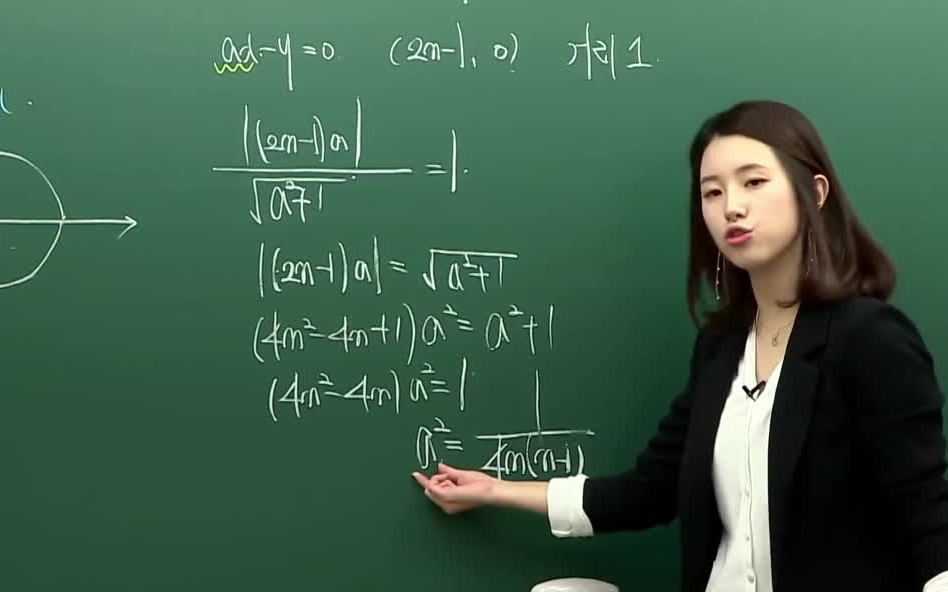 ax-y=0. (2n-1, 0) 거리 1.
|(2n-1)a| / √(a²+1) = 1.
|(2n-1)a| = √(a²+1)
(4n²-4n+1)a² = a²+1
(4n²-4n)a² = 1
a² = 1 / 4n(n-1)